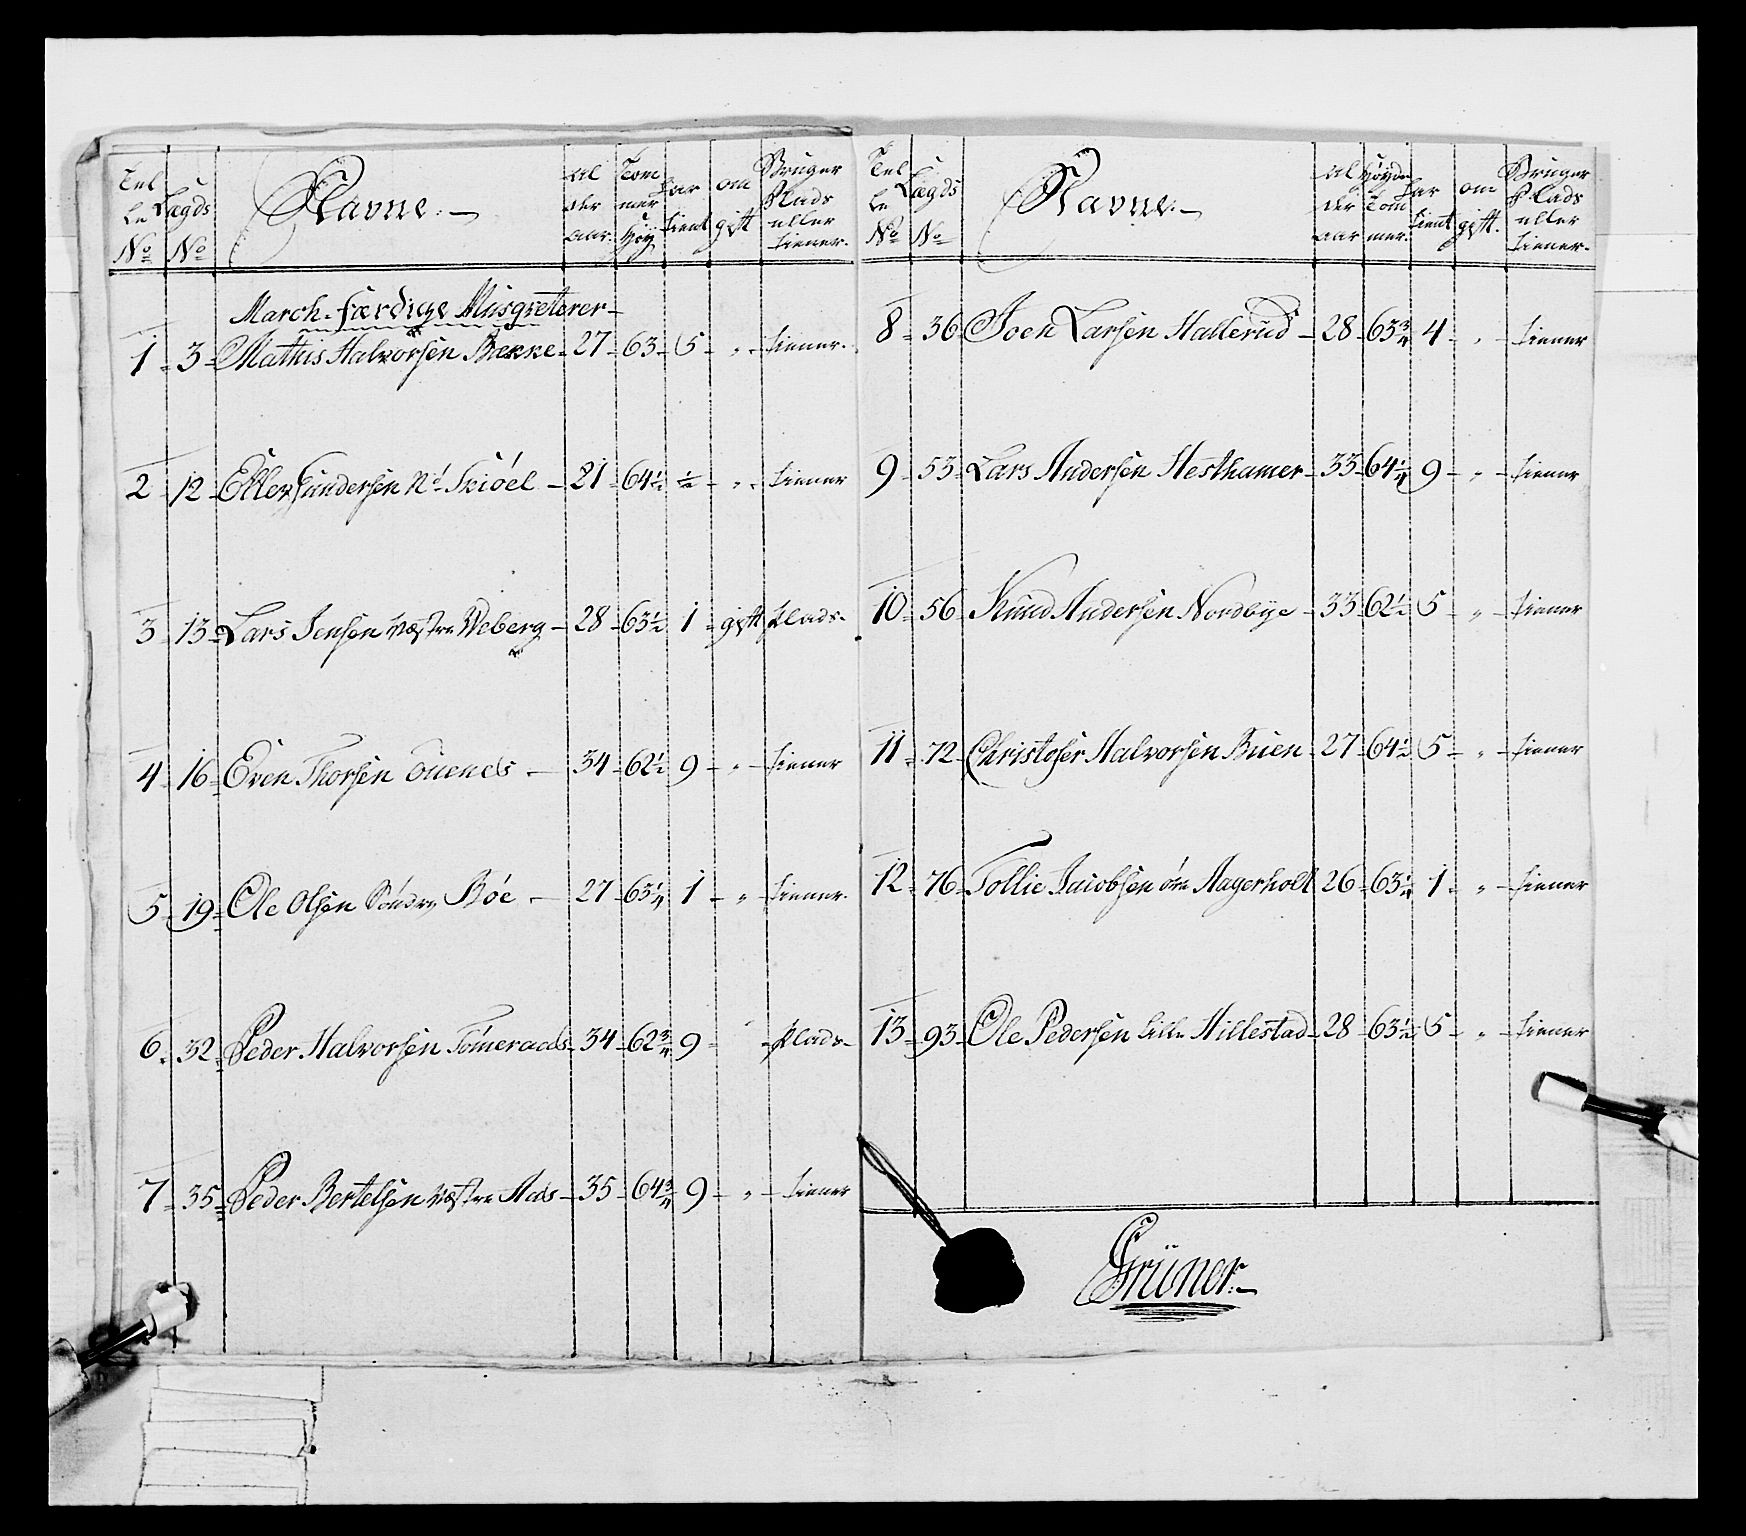 Tel
le
No
Lægds
No
Navne.
Al
der
aar.
Tom
mer
höy
har
tient
om
gift
Bruger
Plads
eller
tiener.
March-færdige Musqueterer
1 - 3 - Mathis Halvorsen Bække - 27 - 63 - 5 - „ - tiener.
2 - 12 - Eller Gundersen Nd. Skiöel - 21 - 64½ - ½ - „ - tiener
3 - 13 - Lars Jensen Væstre Weberg - 28 - 63½ - 1 - gift Plads.
4 - 16 - Even Thorsen - 34 - 62½ - 9 - „ - tiener
5 - 19 - Ole Olsen Söndre Böe - 27 - 63¼ - 1 - „ - tiener.
6 - 32 - Peder Halvorsen Tömeraas - 34 - 62¾ - 9 - Plads -
7 - 35 - Peder Bertelsen Væstre Aas - 35 - 64¾ - 9 - „ - tiener
Tel
le
No
Lægds
No
Navne.
Al
der
aar
höyde
Tom
mer.
har
tient
om
gift.
Bruger
Plads
eller
tiener.
8 - 36 - Joen Larsen Hallerud - 28 - 63¾ - 4 - „ - tiener
9 - 53 - Lars Andersen Hesthamer - 33 - 64¼ - 9 - „ - tiener
10 - 56 - Knud Andersen Nordbye - 33 - 62½ - 5 - „ - tiener
11 - 72 - Christofer Halvorsen Buen - 27 - 64½ - 5 - „ - tiener
12 - 76 - Tollie Jacobsen Aagerholt 26 - 63¼ - 1 - „ - tiener
13 - 93 - Ole Pedersen Lille Hillestad - 28 - 63½ - 5 - „ - tiener
Grüner.